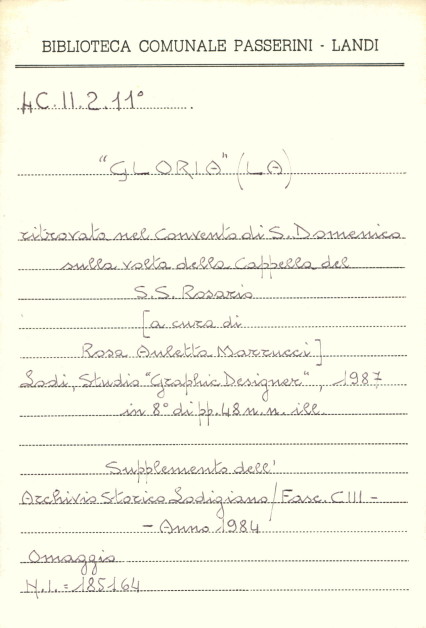 BIBLIOTECA COMUNALE PASSERINI - LANDI
4C.II.2.11°
"GLORIA" (LA)
ritrovata nel Convento di S. Domenico
sulla volta della Cappella del
S.S. Rosario
[a cura di
Rosa Auletta Marrucci]
Lodi, Studio "Graphic Designer", 1987
in 8° di pp. 48 n.n. ill.
Supplemento dell'
Archivio Storico Lodigiano / Fasc. CIII -
- Anno 1984
Omaggio
N.I. = 185164